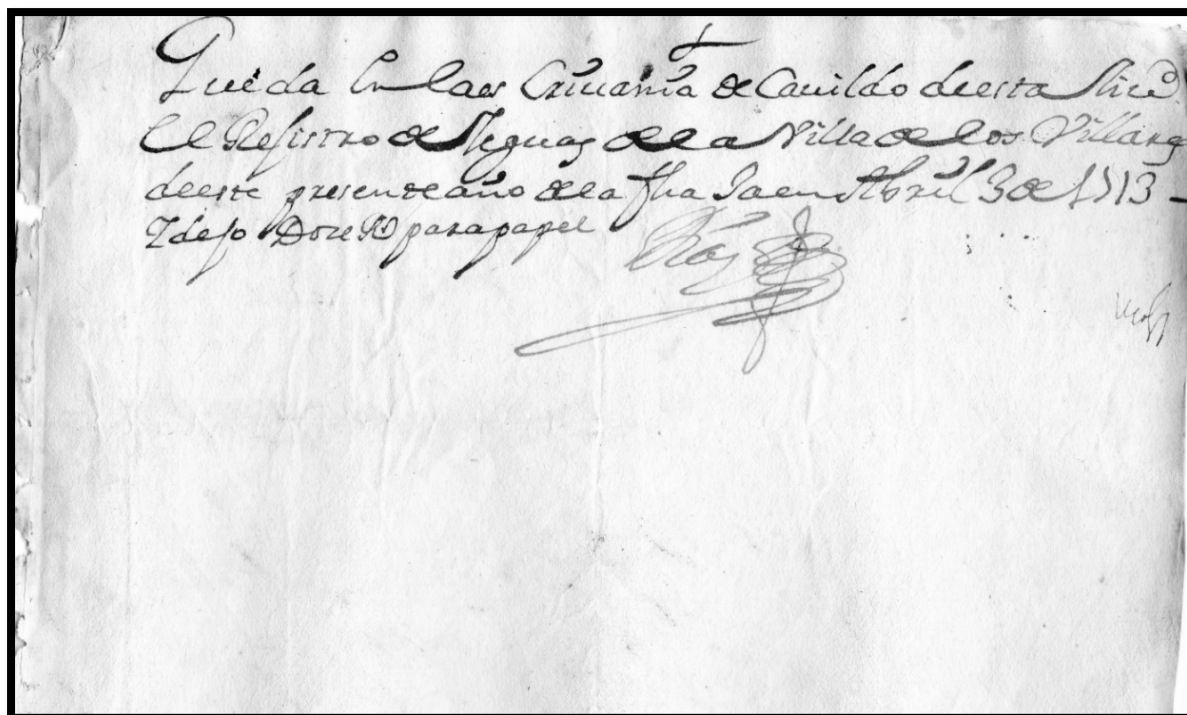 Queda en la es Criuania de Cauildo deesta
el Rexistro de Yeguas de la Villa de los Villares
deeste presente año de la fha Jaen Abril 3 de 1713
Y dejo Doze Rs para papel